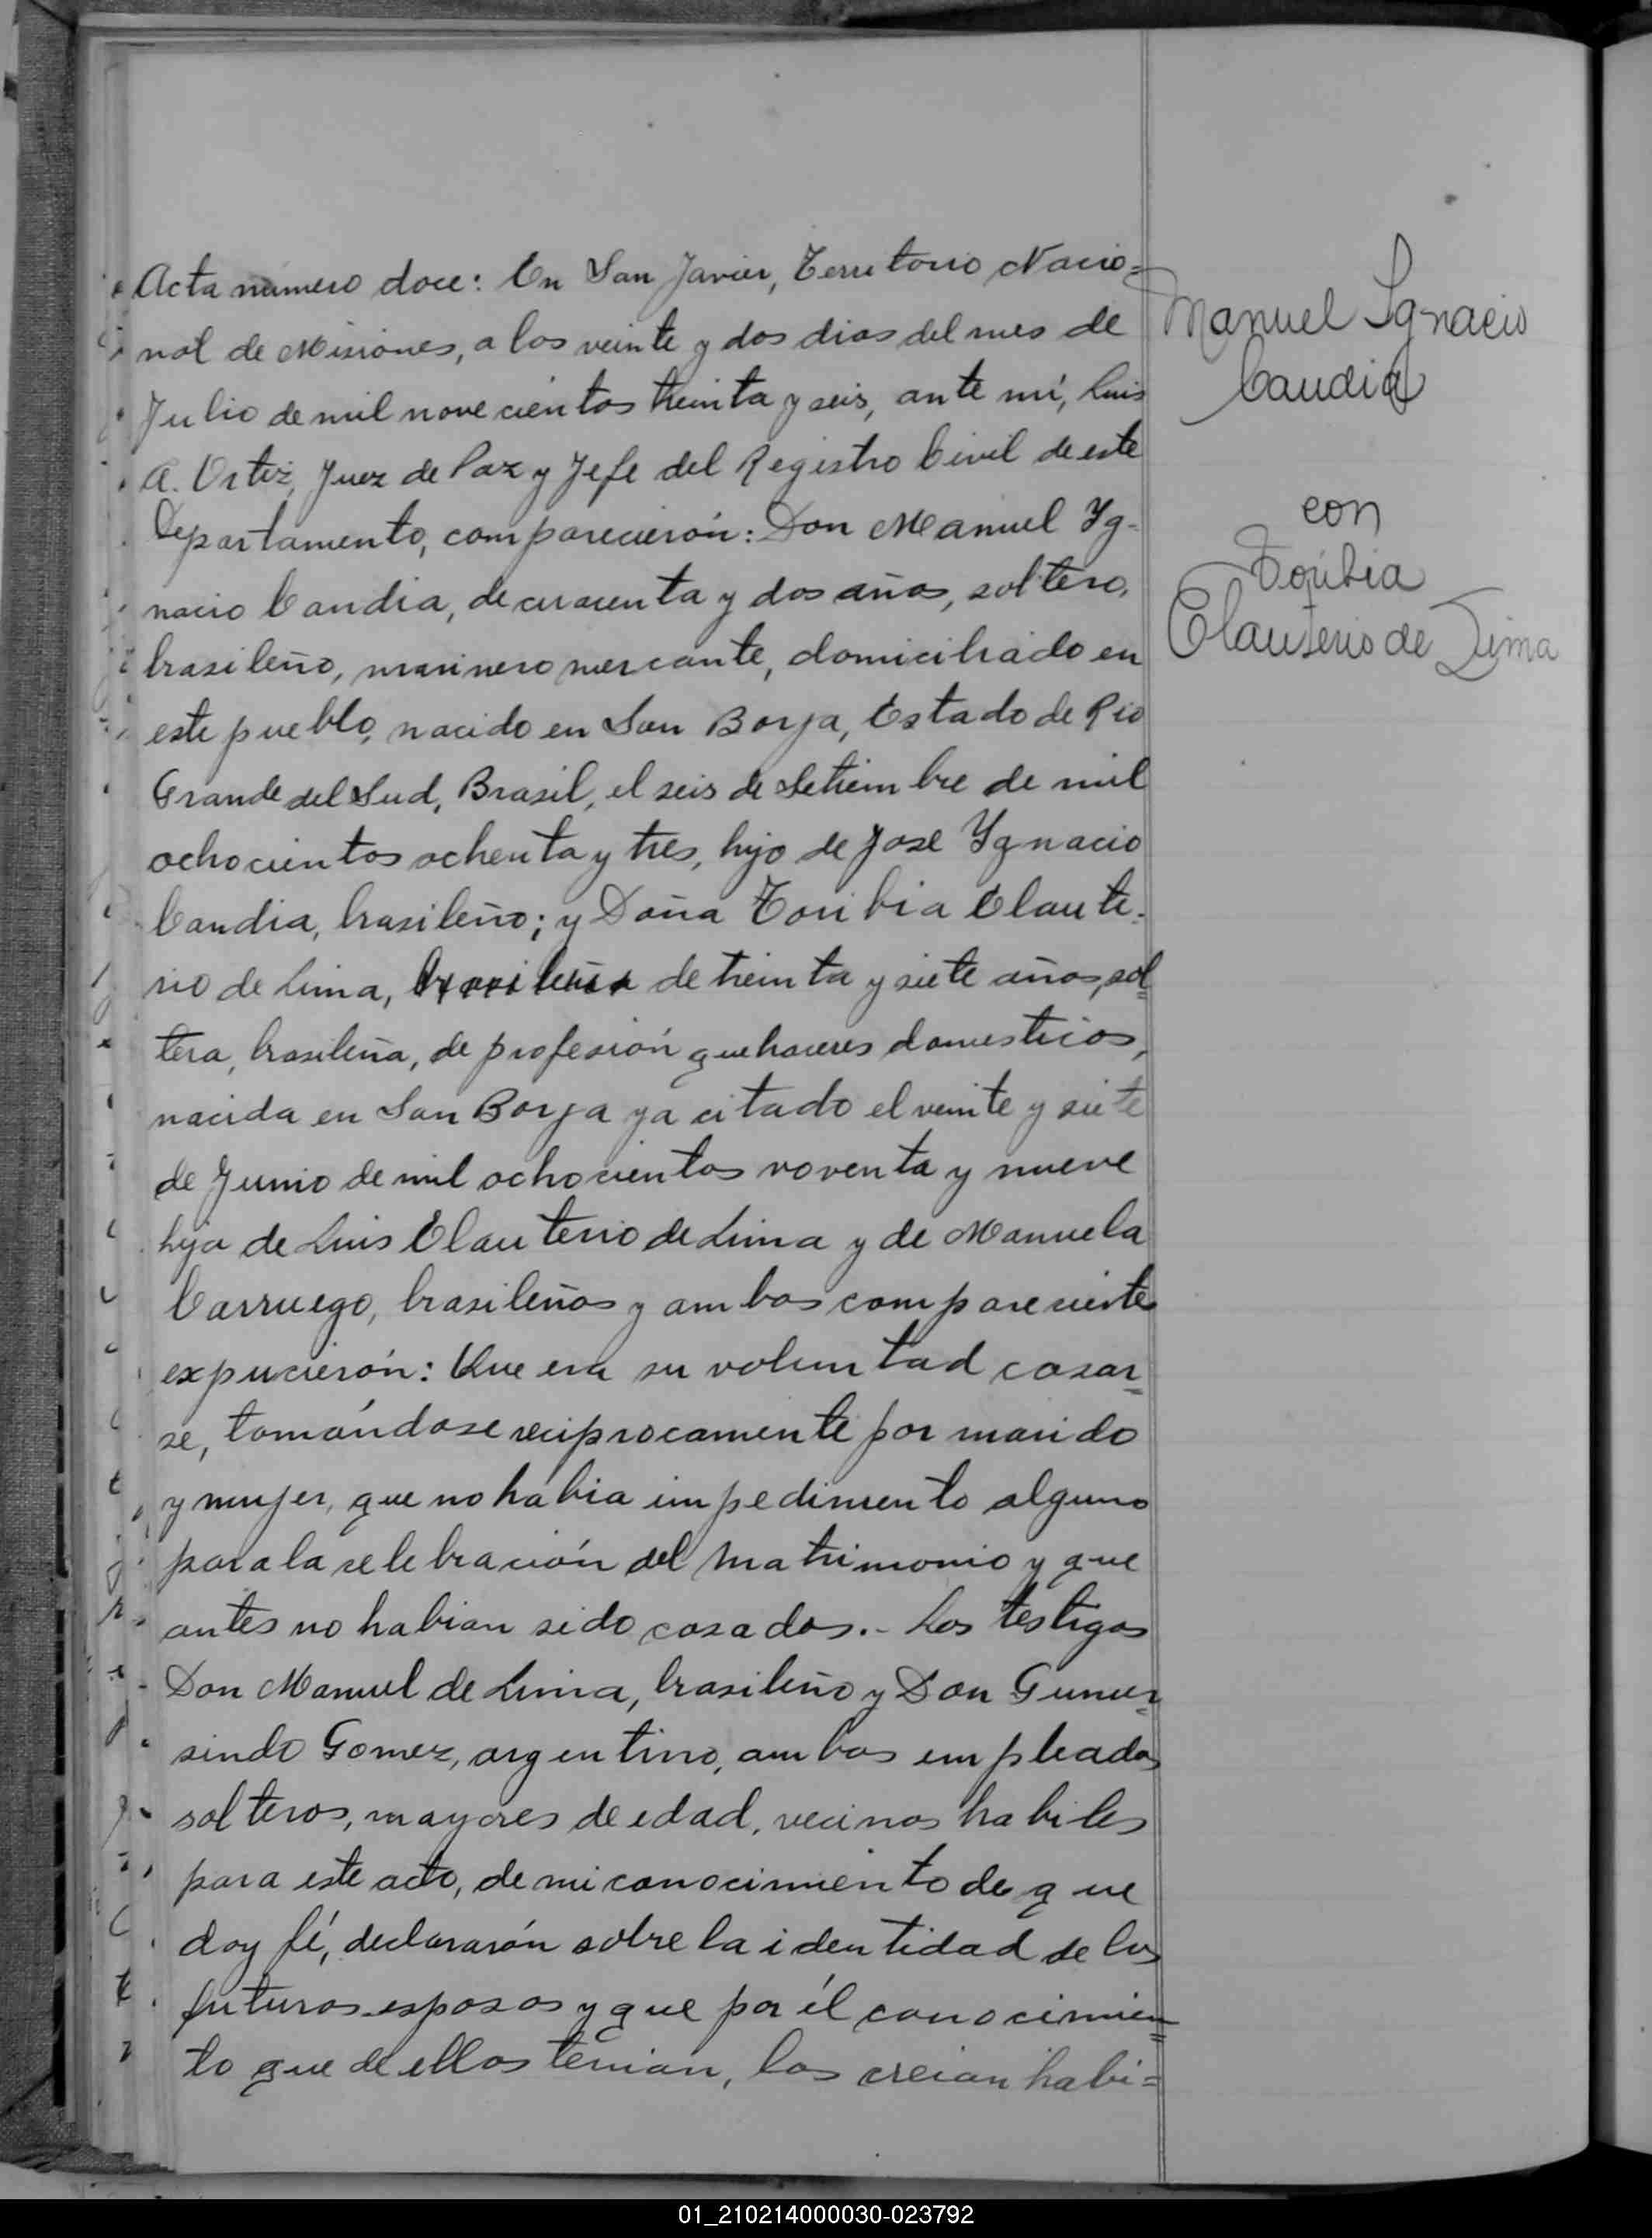 Acta número doce: En San Javier, Territorio Nacio=
nal de Misiones, a los veinte y dos dias del mes de
Julio de mil novecientos treinta y seis, ante mí, Luis
A. Ortiz, Juez de Paz y Jefe del Registro Civil de este
Departamento, comparecierón: Don Manuel Yg-
nacio Candia, de cuarenta y dos años, soltero,
brasileño, marinero mercante, domiciliado en
este pueblo, nacido en San Borja, Estado de Rio
Grande del Sud, Brasil, el seis de Setiembre de mil
ochocientos ochenta y tres, hijo de José Ygnacio
Candia, brasileño; y Doña Toribia Elaute-
rio de Lima, brasileña de treinta y siete años, sol=
tera, brasileña, de profesión quehaceres domesticos,
nacida en San Borja ya citado el veinte y siete
de Junio de mil ochocientos noventa y nueve
hija de Luis Elauterio de Lima y de Manuela
Carruego, brasileños y ambos comparecientes
expucierón: Que era su voluntad casar=
se, tomándose reciprocamente por marido
y mujer, que no habia impedimento alguno
para la selebración del matrimonio y que
antes no habian sido casados.- Los testigos
Don Manuel de Lima, brasileño y Don Gumer=
sindo Gomez, argentino, ambos empleados
solteros, mayores de edad, vecinos habiles
para este acto, de mi conocimiento de que
doy fé, declararón sobre la identidad de los
futuros esposos y que por él conocimien=
to que de ellos tenian, los creian habi=
Manuel Ignacio
Candia
con
Toribia
Elauterio de Lima
01_210214000030-023792